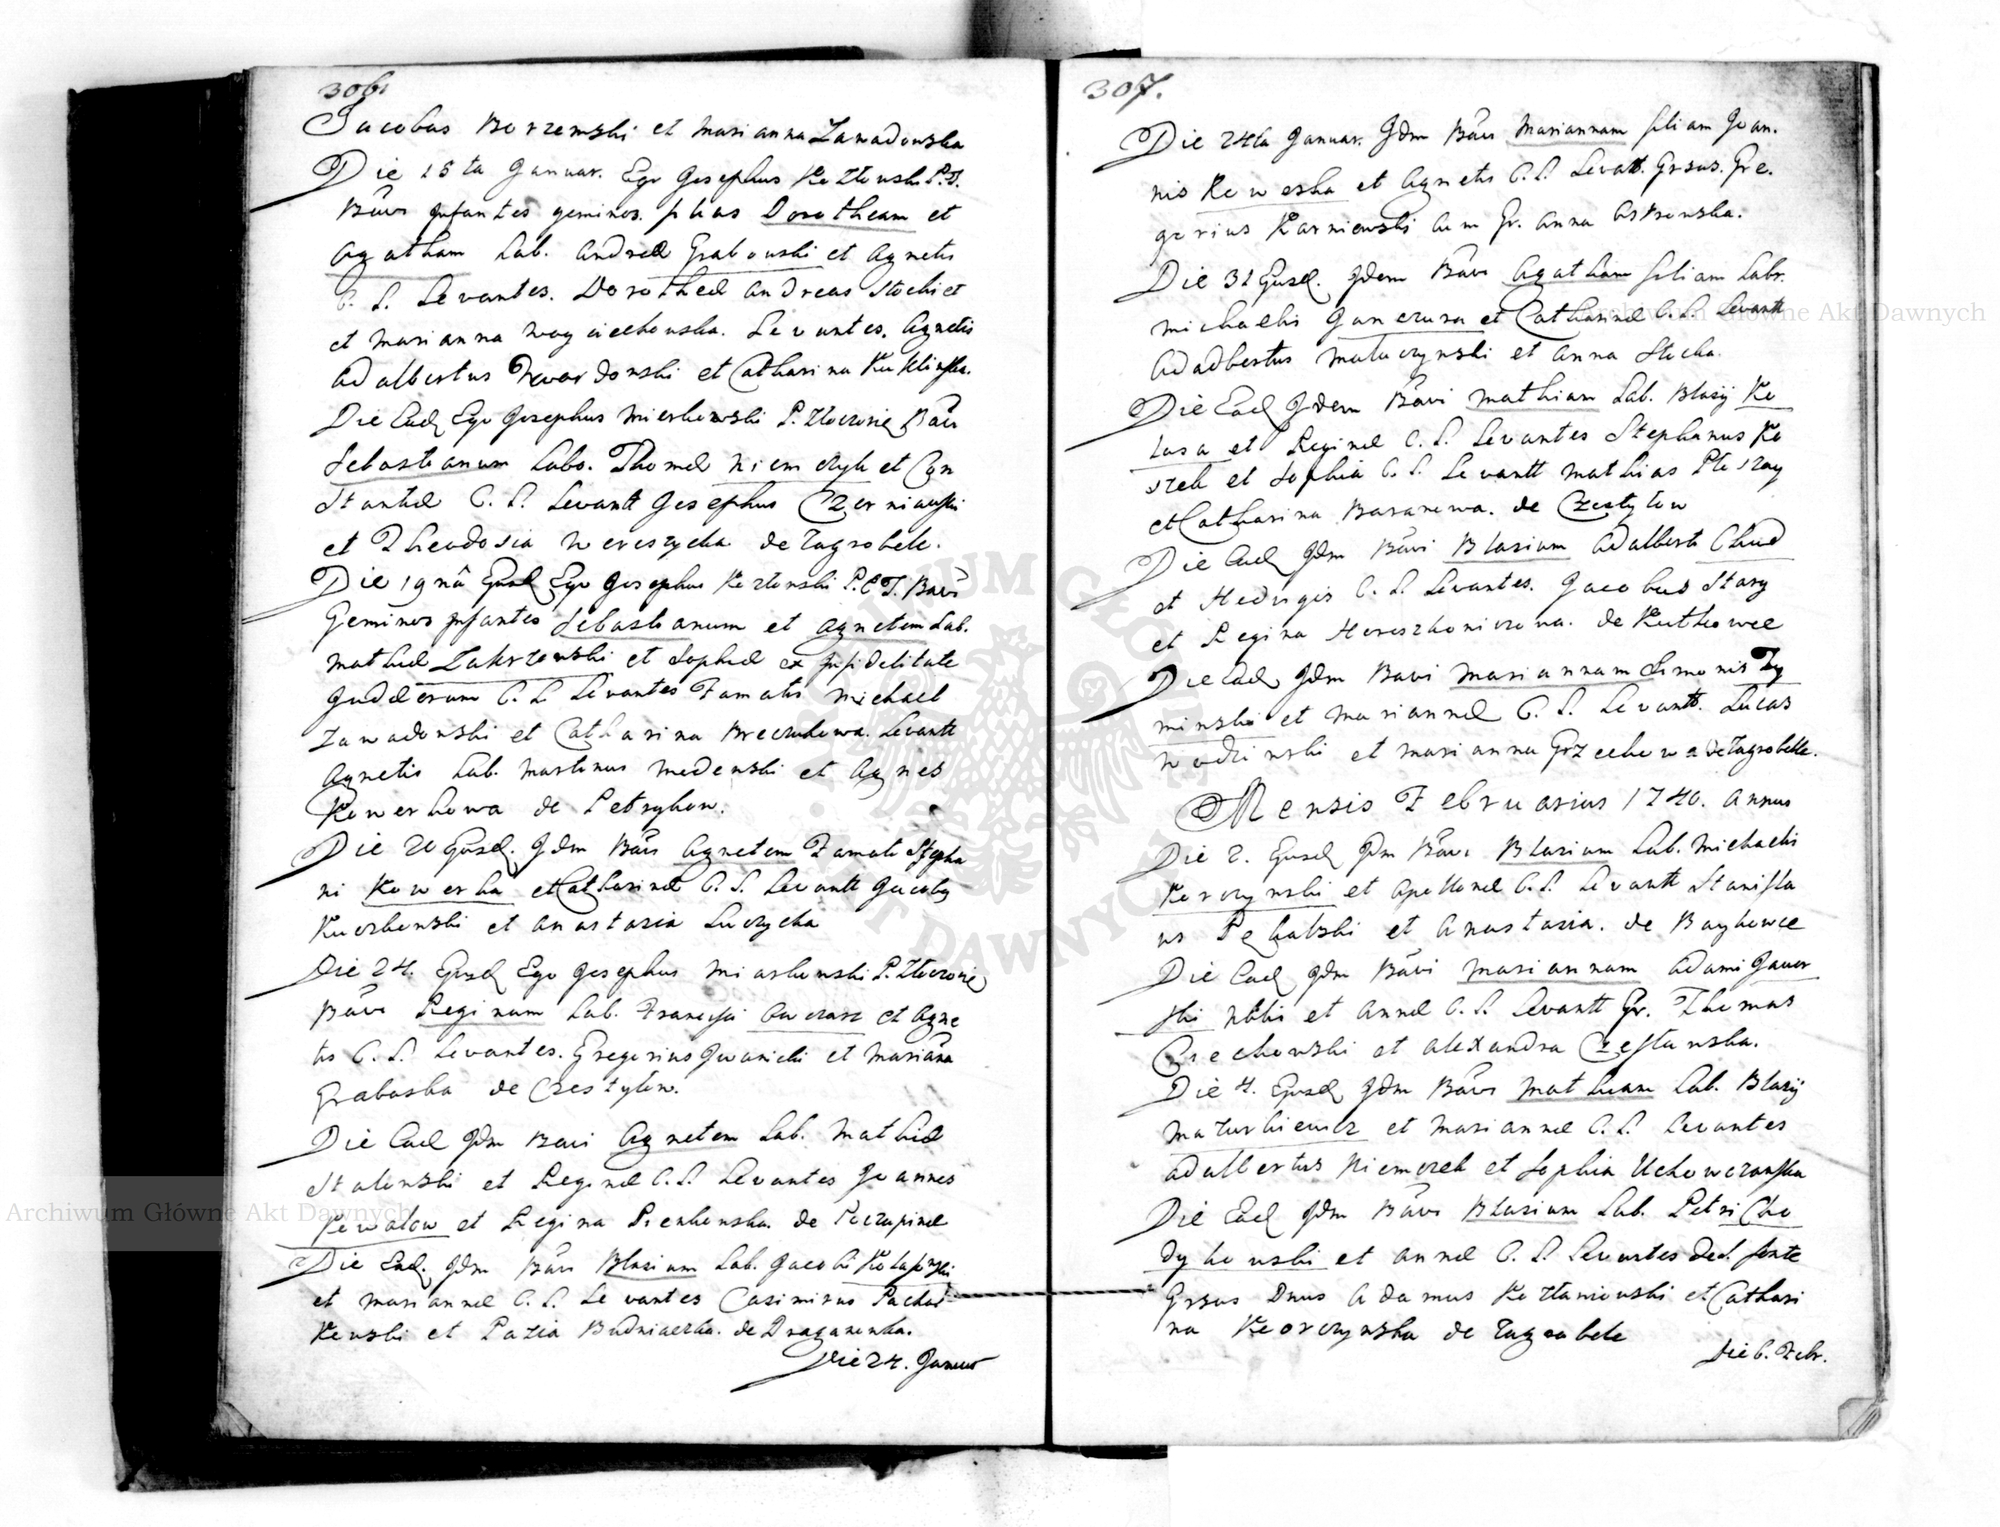 306
Jacobus Borzemski et Marianna Zawadowska
Die 18ta Januar. Ego Josephus Kozłowski P.T.
Bãvi Infantes geminos. filias Dorotheam et
Agatham Lab. Andreæ Grabowski et Agnetis
C. L. Levantes. Dorotheæ Andreas Stocki et
et Marianna Woyciechowska. Levantes. Agnetis
Adalbertus Twardowski et Catharina Kuklinska.
Die Ead Ego Josephus Mierkowski P. Złoczoviē Bãvi
Sebastianum Labo. Thomæ Niemczyk et Con
Stantiæ C. L. Levantt Josephus Czerniawski
et Theodosia Wereszycka de Zagrobele.
Die 19nâ Eiusd Ego Josephus Kozłowski P. C. T. Bãvi
Geminos Infantes Sebastianum et Agnetem Lab.
Mathiæ Zakrzewski et Sophiæ ex Infidelitate
Judæorum C. L. Levantes Famati Michael
Zawadowski et Catharina Breczkowa. Levantt
Agnetis Lab. Martinus Medenski et Agnes
Kowerkowa de Petrykow.
Die 20 Eiusd. Idm Bãvi Agnetem Famati Stepha
ni Kowerka et Catharinæ C. L. Levantt Jacoby
Kuczkowski et Anastazia Luczycka
Die 24. Eiusd Ego Josephus Miaskowski P. Złoczoviē
Bãvi Reginam Lab. Francisci Owczarz et Agne
tis C. L. Levantes. Gregorius Iwanicki et Mariãna
Grabaska de Czestylow.
Die Ead Idm Bavi Agnetem Lab. Mathiæ
Stalinski et Reginæ C. L. Levantes Joannes
Kowalow et Regina Pienkowska. de Poczapinæ
Die Ead. Idm Bãvi Blasium Lab. Jacobi Kołapinski
et Mariannæ C. L. Levantes Casimirus Pachol
Kowski et Pazia Budniaczka. de Draganowka.
Die 24. Januar
307.
Die 24ta Januar. Idm Bãvi Mariannam filiam Joan.
nis Kowerka et Agnetis C. L. Levatt. Grsus. Gre.
gorius Karniewski cum Gr. Anna Ostrowska.
Die 31 Eiusd. Idem Bãvi Agatham filiam Labr.
Michaelis Ganczura et Catharinæ C. L. Levantt
Adalbertus Matuczynski et Anna Stocka.
Die Ead Idem Bãvi Mathiam Lab. Blasÿ Ko
tusa et Reginæ C. L. Levantes Stephanus Ko
rzeli et Sophia C. L. Levantt Mathias Pleszay
et Catharina Baranowa. de Czestylow
Die Ead Idm Bãvi Blasium Adalberti Chud
et Hedvigis C. L. Levantes. Jacobus Stary
et Regina Hereszkoniczowa. de Kutkowce
Die Ead Idm Bavi Mariannam Simonis Zy
minski et Mariannæ C. L. Levantt. Lucas
Wodzinski et Marianna Grzechowa de Zagrobelle.
Mensis Februarius 1740. Annus
Die 2. Eiusd Idm Bãvi Blasium Lab. Michaelis
Korczynski et Apolloniæ C. L. Levantt Stanisla
us Pękalski et Anastazia. de Baykowce
Die Ead Idm Bãvi Mariannam Adami Jawor
ski Nobilis et Annæ C. L. Levantt Gr. Thomas
Czechowski et Alexandra Czestawska.
Die 4. Eiusd Idm Bãvi Mathiam Lab. Blasÿ
Mazurkiewicz et Mariannæ C. L. Levantes
Adalbertus Niemczeli et Sophia Uchowczanska
Die Ead Idm Bãvi Blasium Lab. Petri Cho
dykowski et Annæ C. L. Levantes de S. fonte
Grsus Dnus Adamus Kozłaniowski et Cathari
na Korczynska de Zagrobele
Die 6. Febr.
Archiwum Główne Akt Dawnych
Archiwum Główne Akt Dawnych
ARCHIWUM GŁÓWNE AKT DAWNYCH